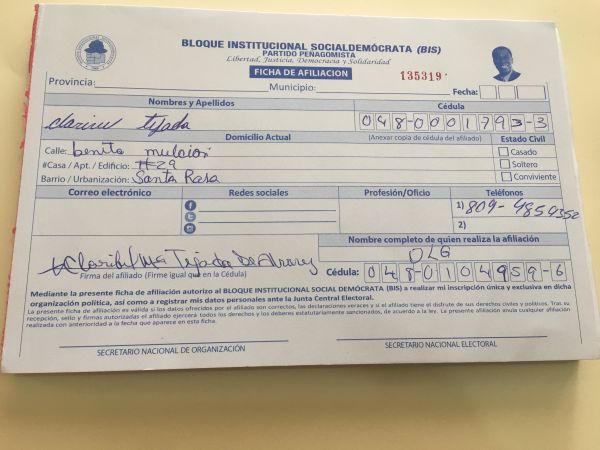 BLOQUE INSTITUCIONAL SOCIALDEMÓCRATA (BIS)
PARTIDO PEÑAGOMISTA
Libertad, Justicia, Democracia y Solidaridad
FICHA DE AFILIACION 135319
Provincia: Municipio: Fecha:
Nombres y Apellidos Cédula
Claricel tejada 048-0001793-3
Domicilio Actual (Anexar copia de cédula del afiliado) Estado Civil
Calle: benita Casado
#Casa / Apt. / Edificio: #29 Soltero
Barrio / Urbanización: Santa Rasa Conviviente
Correo electrónico Redes sociales Profesión/Oficio Teléfonos
1) 809-
2)
Nombre completo de quien realiza la afiliación
DLG
Tejada De
Firma del afiliado (Firme igual que en la Cédula) Cédula: 048-0104959-6
Mediante la presente ficha de afiliación autorizo al BLOQUE INSTITUCIONAL SOCIAL DEMÓCRATA (BIS) a realizar mi inscripción única y exclusiva en dicha
organización política, así como a registrar mis datos personales ante la Junta Central Electoral.
La presente ficha de afiliación es válida si los datos ofrecidos por el afiliado son correctos, las declaraciones veraces y si el afiliado tiene el disfrute de sus derechos civiles y políticos. Tras su
recepción, sello y firmas autorizadas el afiliado ejercerá todos los derechos y los deberes estatutariamente sancionados, de acuerdo a la ley. La presente afiliación anula cualquier afiliación
realizada con anterioridad a la fecha que aparece en esta ficha.
SECRETARIO NACIONAL DE ORGANIZACIÓN SECRETARIO NACIONAL ELECTORAL